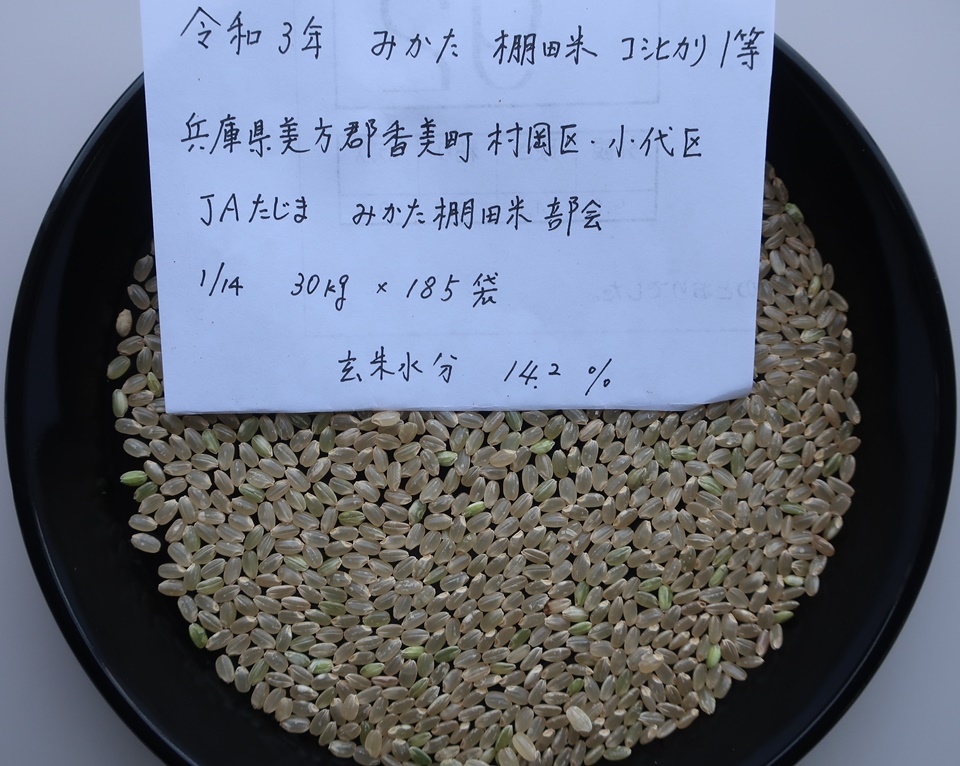 令和3年 みかた 棚田米 コシヒカリ 1等
兵庫県美方郡香美町 村岡区・小代区
JAたじま みかた棚田米 部会
1/14 30kg × 185 袋
玄米水分 14.2 %